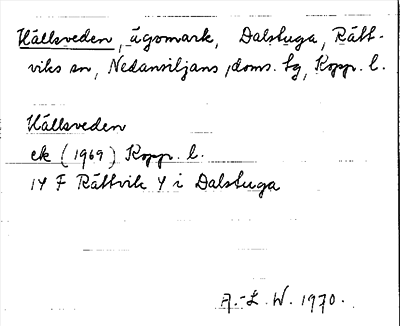 Hällsveden, ägomark, Dalstuga, Rätt-
viks sn, Nedansiljans, doms. tg, Kopp. l.
Hällsveden
ek (1969) Kopp. l.
14 F Rättvik 4 i Dalstuga
A.-L. W. 1970.